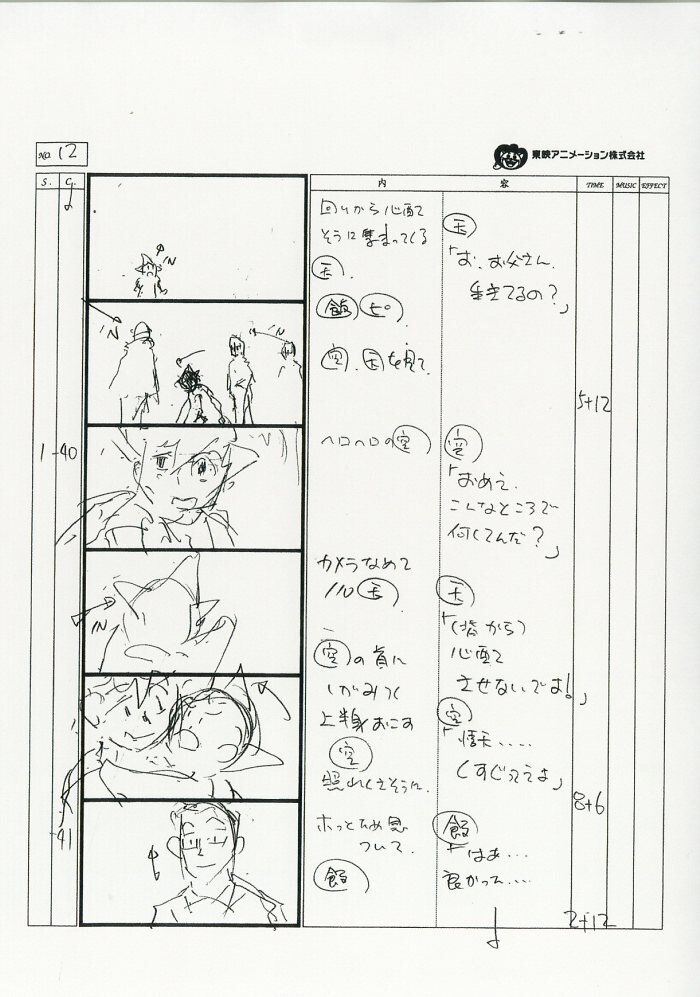 NO. 12
東映アニメーション株式会社
S. C. 内 容 TIME MUSIC EFFECT
回りから心配
そうに集まってくる
天
天
「お、お父さん、
生きてるの?」
飯 ピ
空、天を見て、
5+12
1 -40
ヘロヘロの空
空
「おめえ、
こんなところで
何してんだ?」
カメラなめて
IN 天
天
「(皆から)
心配
させないでよ!」
空の肩に
しがみつく
上半身おこす
空
照れくさそうに、
空
「悟天‥‥
くすぐってえよ」
8+6
-41
ホッとため息
ついて、
飯
飯
「はあ‥‥
良かった‥‥
2+12
IN
IN
IN
IN